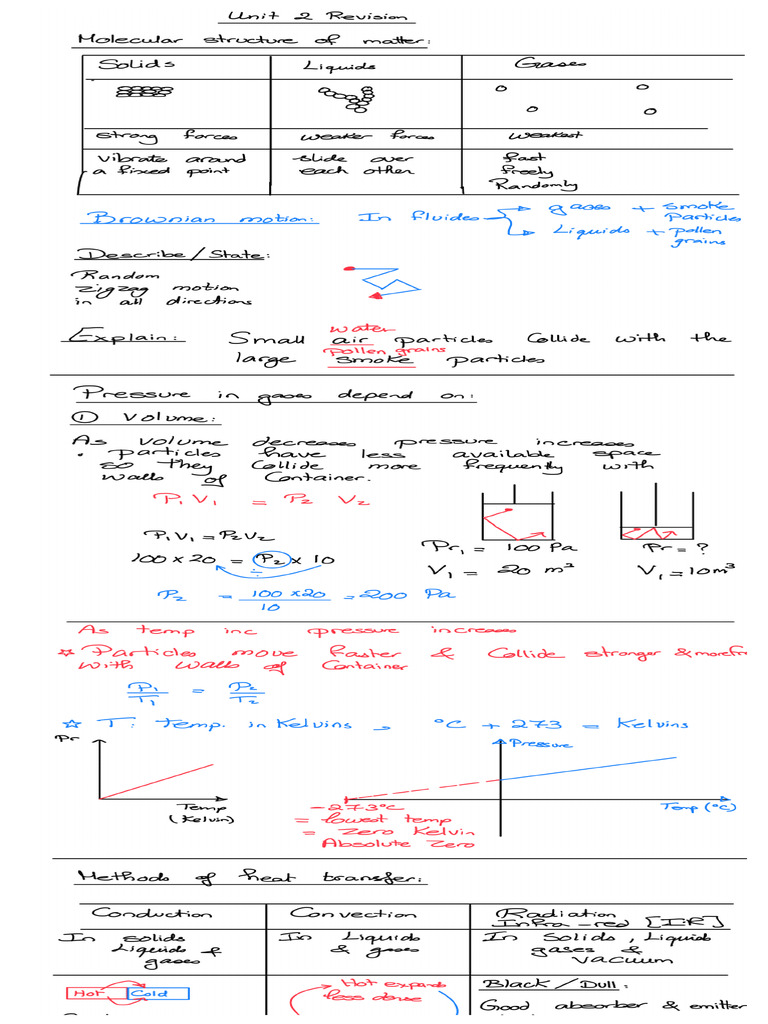 Unit 2 Revision
Molecular structure of matter:
Solids Liquids Gases
strong forces weaker forces weakest
vibrate around a fixed point
slide over each other
fast
freely
Randomly
Brownian motion: In fluides
gases + smoke Particles
Liquids + pollen grains
Describe/State:
Random
zigzag motion
in all directions
water
Explain: Small air particles Collide with the
pollen grains
large smoke particles
Pressure in gases depend on:
① Volume:
As volume decreases pressure increases
• particles have less available space
so they collide more frequently with
walls of Container.
P₁V₁ = P₂ V₂
P₁V₁ = P₂V₂
100 x 20 = P₂ x 10
÷
P₂ = 100 x 20 / 10 = 200 Pa
Pr₁ = 100 Pa
V₁ = 20 m³
Pr = ?
V₁ = 10m³
As temp inc pressure increases
☆ Particles move faster & Collide stronger & more fre
with walls of Container
P₁/T₁ = P₂/T₂
☆ T: Temp. in Kelvins , °C + 273 = Kelvins
Pr
Temp
(Kelvin)
Pressure
Temp (°C)
-273°C
= lowest temp
= Zero Kelvin
Absolute Zero
Methods of heat transfer:
Conduction Convection Radiation
Infra-red [I.R]
In solids
Liquids &
gases
In Liquids
& gases
In Solids, Liquids
gases &
vacuum
Hot Cold
Hot expands
less dense
Black/Dull:
Good absorber & emitter